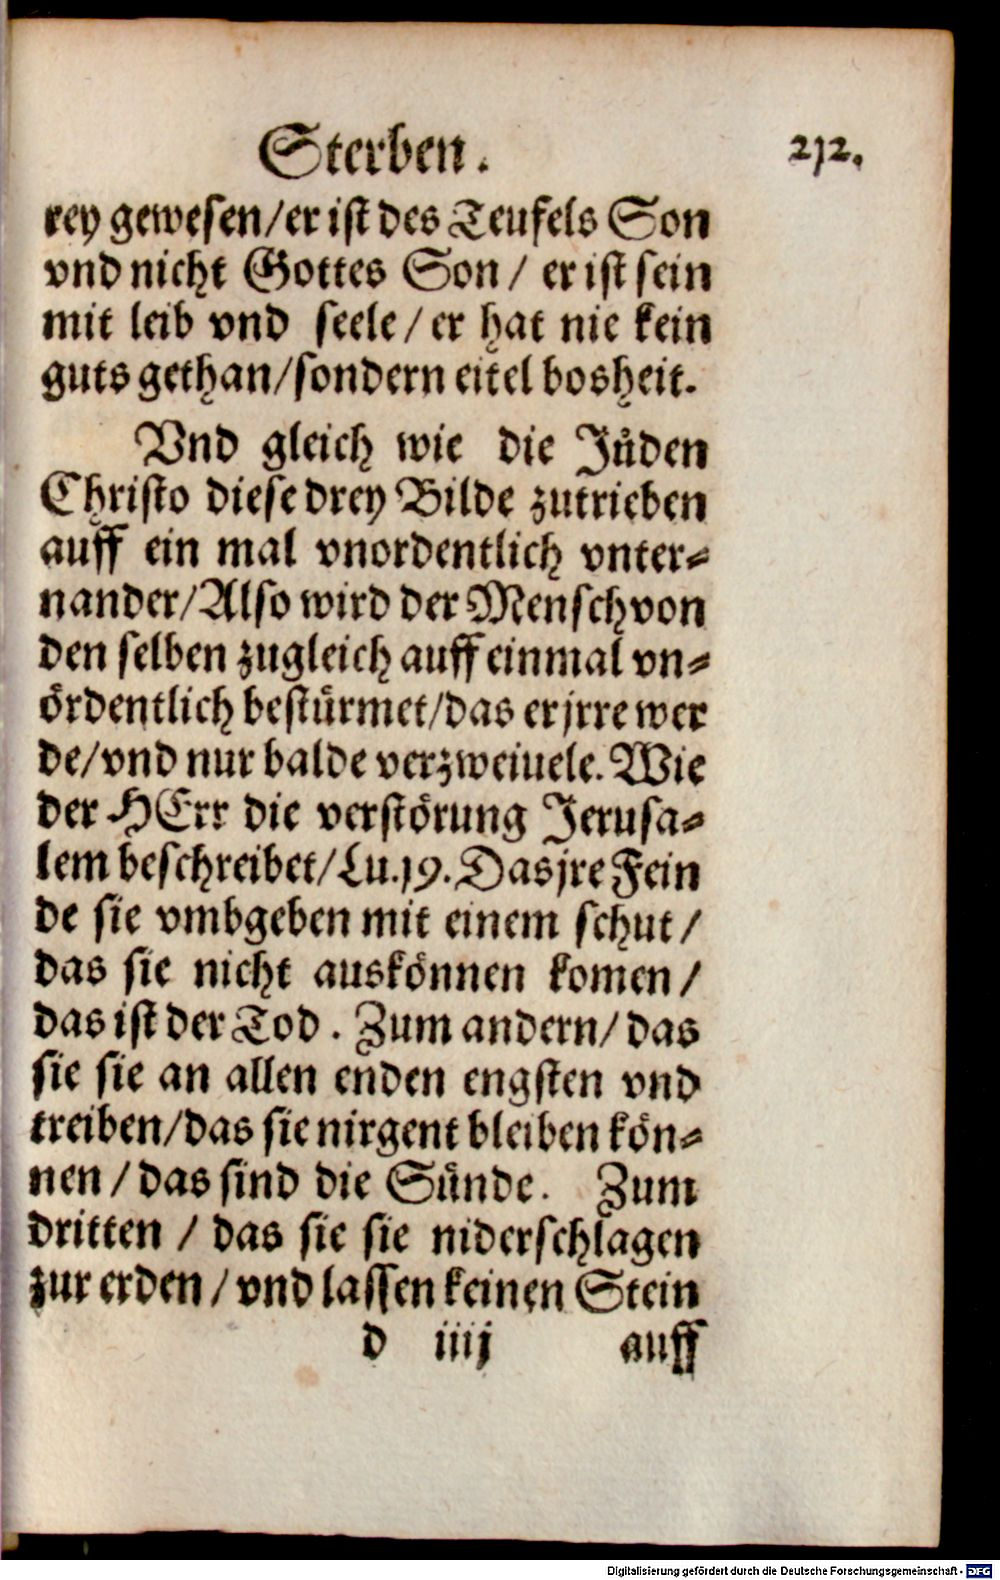 Sterben. 212.
rey gewesen/er ist des Teufels Son
vnd nicht Gottes Son/ er ist sein
mit leib vnd seele/er hat nie kein
guts gethan/sondern eitel bosheit.
Vnd gleich wie die Jüden
Christo diese drey Bilde zutrieben
auff ein mal vnordentlich vnter-
nander/Also wird der Mensch von
den selben zugleich auff einmal vn-
ördentlich bestürmet/das er jrre wer
de/vnd nur balde verzweiuele. Wie
der HErr die verstörung Jerusa-
lem beschreibet/Lu.19. Das jre Fein
de sie vmbgeben mit einem schut/
das sie nicht auskönnen komen/
das ist der Tod. Zum andern/das
sie sie an allen enden engsten vnd
treiben/das sie nirgent bleiben kön-
nen/das sind die Sünde. Zum
dritten/ das sie sie niderschlagen
zur erden/vnd lassen keinen Stein
d iiij auff
Digitalisierung gefördert durch die Deutsche Forschungsgemeinschaft - DFG